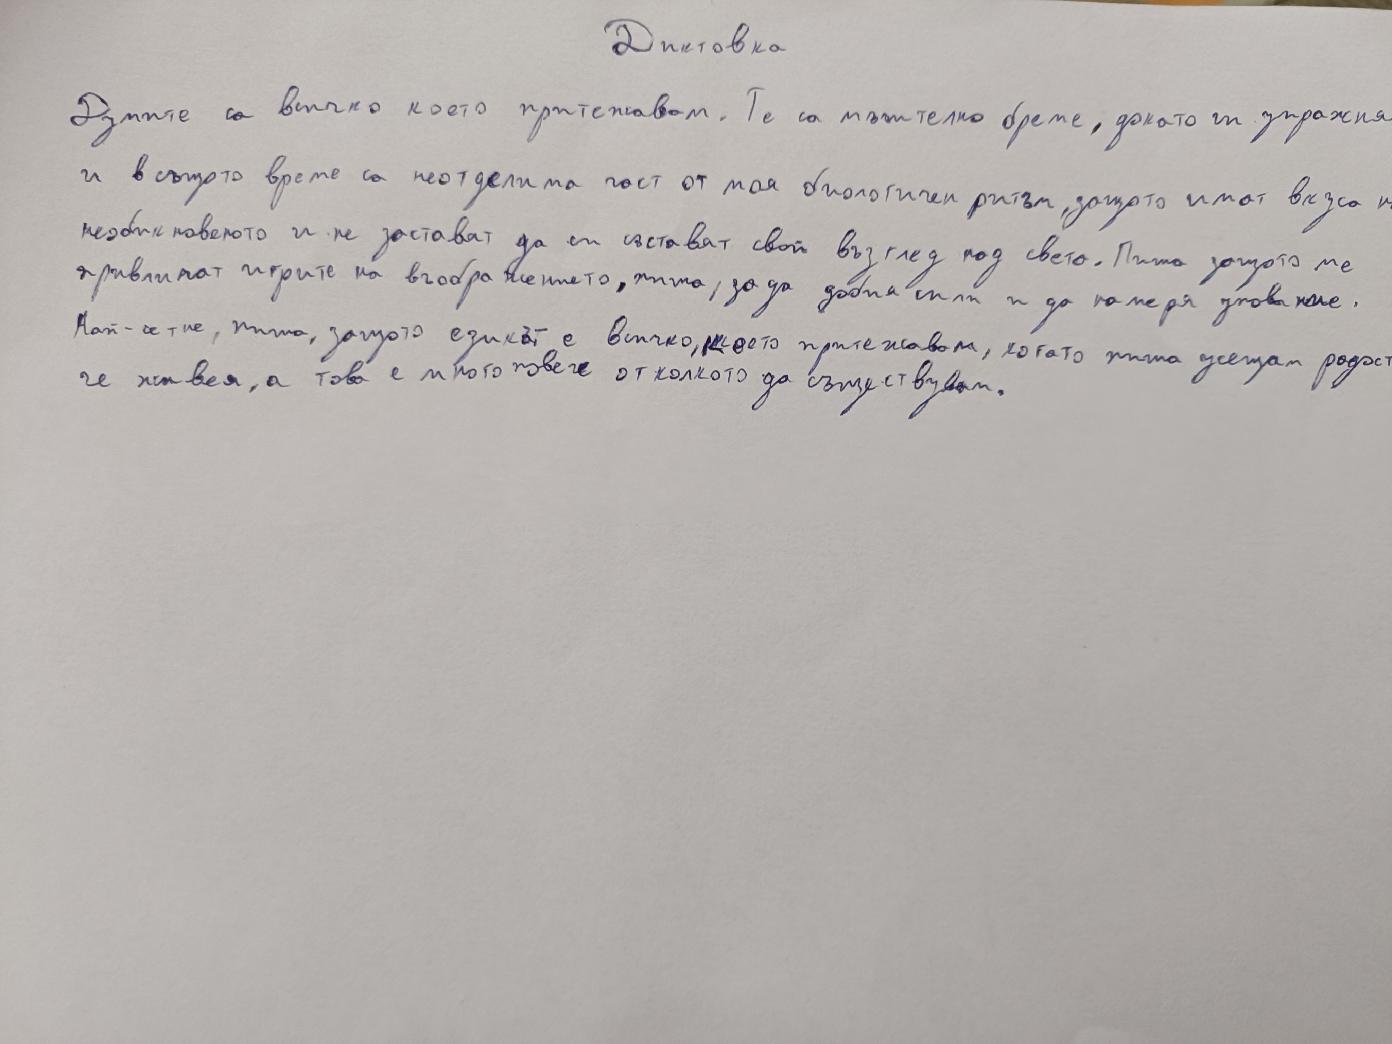 Диктовка
Думите са всичко което притежавам. Те са мъчително бреме, докато ги упражня
и в същото време са неотделима част от моя биологичен ритъм, защото имат вкуса н
необикновеното и не заставят да си съставят свой възглед над света. Пиша защото ме
привличат игрите на въображението, пиша, за да добия сили и да намеря упование.
Най-сетне, пиша, защото езикът е всичко, което притежавам, когато пиша усещам радост
че живея, а това е много повече отколкото да съществувам.